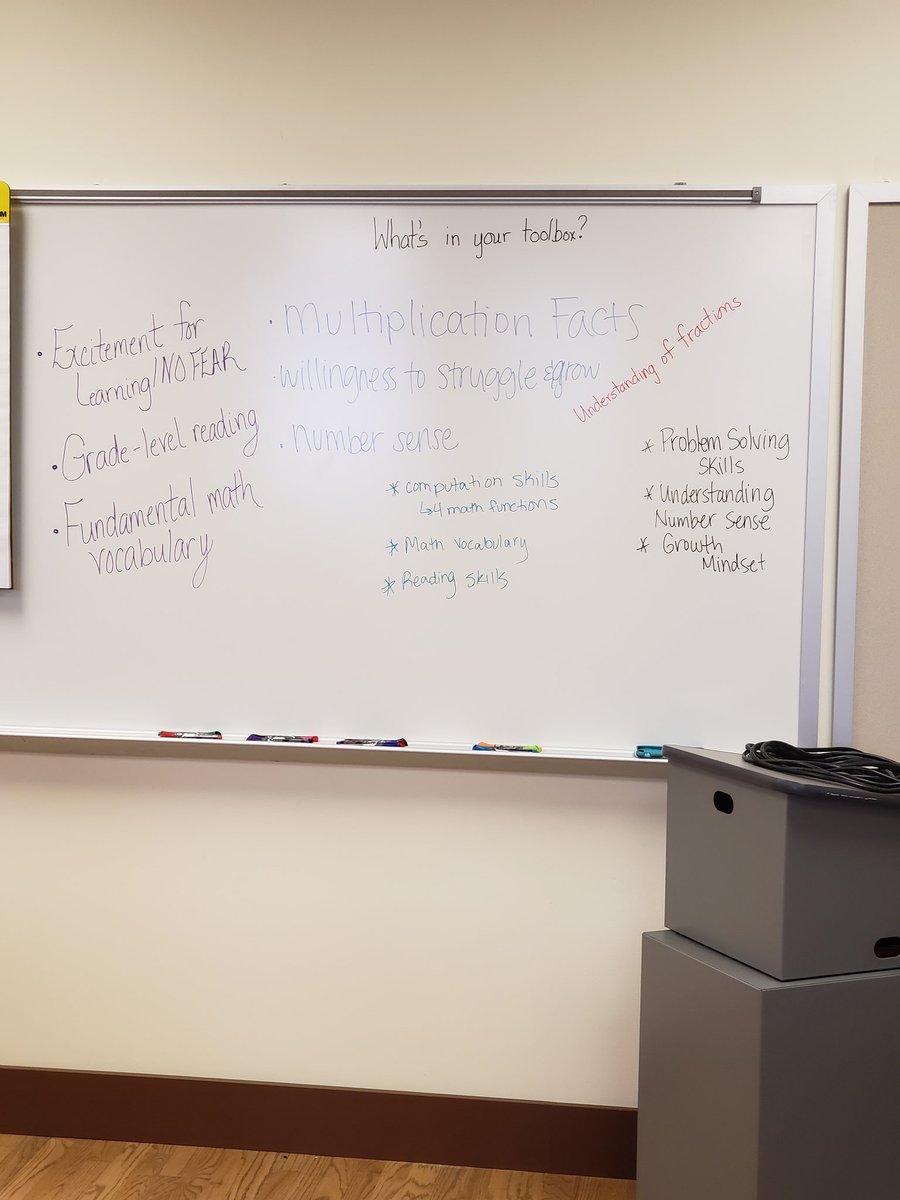 What's in your toolbox?
• Excitement for
Learning/NO FEAR
• Grade-level reading
• Fundamental math
vocabulary
• Multiplication Facts
• willingness to struggle & grow
• Number sense
* computation skills
↳ 4 math functions
* Math vocabulary
* Reading skills
Understanding of fractions
* Problem Solving
Skills
* Understanding
Number Sense
* Growth
Mindset